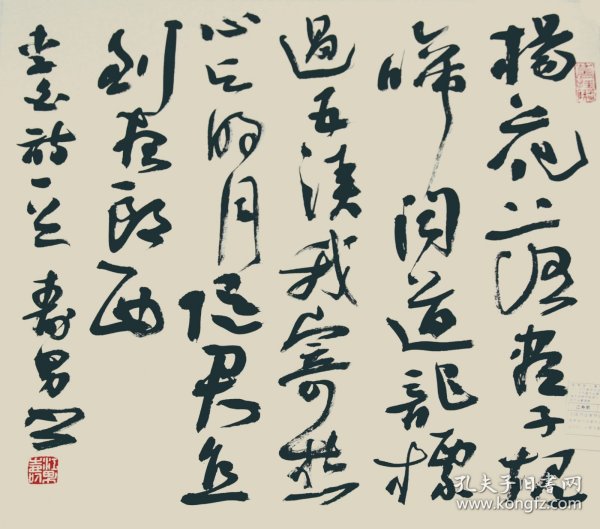 楊花落盡子規
啼聞道龍標
過五溪我寄愁
心与明月随君直
到夜郎西
李白詩一首 壽男書
孔夫子旧书网
www.kongfz.com